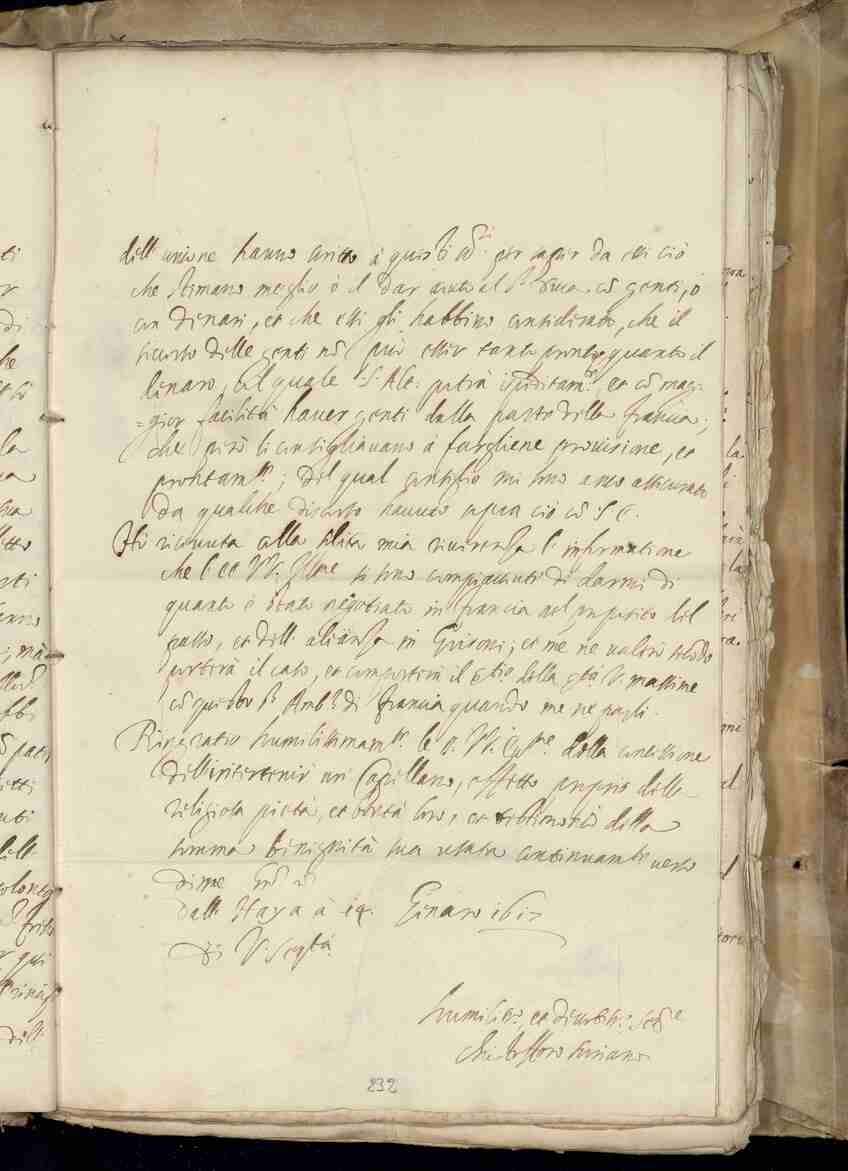 dell'unione hanno scritto à questi per saper da essi ciò
che stimano meglio ò il dar aiuto al Sr Duca con genti, ò
con denari, et che essi gli habbino considerato, che il
soccorso delle genti nõ può esser tanto pronto quanto il
denaro, col quale S. Alt. potrà et cõ mag:
=gior facilità haver genti dalla parte della francia;
che però li consigliavano à fargliene provisione, et
prontamte; del qual consiglio mi sono anco assicurato
da qualche discorso havuto sopra ciò cõ S. E.
Hò ricevuta colla solita mia riverenza l'informatione
che l'EE. VV. Illme si sono compiacciute di darmi di
quanto è stato negotiato in francia nel proposito del
passo, et dell'alianza in Grisoni; et me ne valerò secondo
porterà il caso, et comporterà il servitio della V. massime
cõ questo Sr Ambr di francia quando me ne parli.
Ringratio humilissimamte le EE. VV. Ecme della concessione
dell'intertenir un Capellano, effetto proprio della
religiosa pietà, et bontà loro, et testimonio della
somma benignità sua usata continuamte verso
di me
Dall'Haya à 14. Genaro 1617
Di V. Sertà
humilissmo et devotissmo
Christofforo Suriano
232